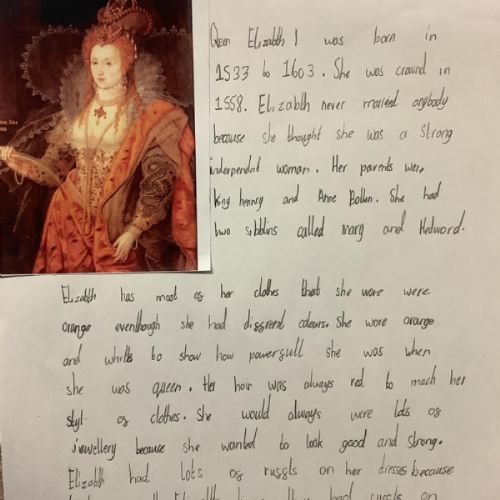 Queen Elizabth I was born in
1533 to 1603. She was craund in
1558. Elizabth never marreid anybody
because she thought she was a strong
independent woman. Her parents were
king henrry and Anne Bollen. She had
two sibblins called mary and Hedward.
Elizabth has most of her clothes that she wore were
orange eventhough she had diffrent colours. She wore orange
and to show how powerfull she was when
she was queen. Her hair was always red to mach her
styl of clothes. She would always were lots of
jewellery because she wanted to look good and strong.
Elizabth had lots of ruffls on her dresses because